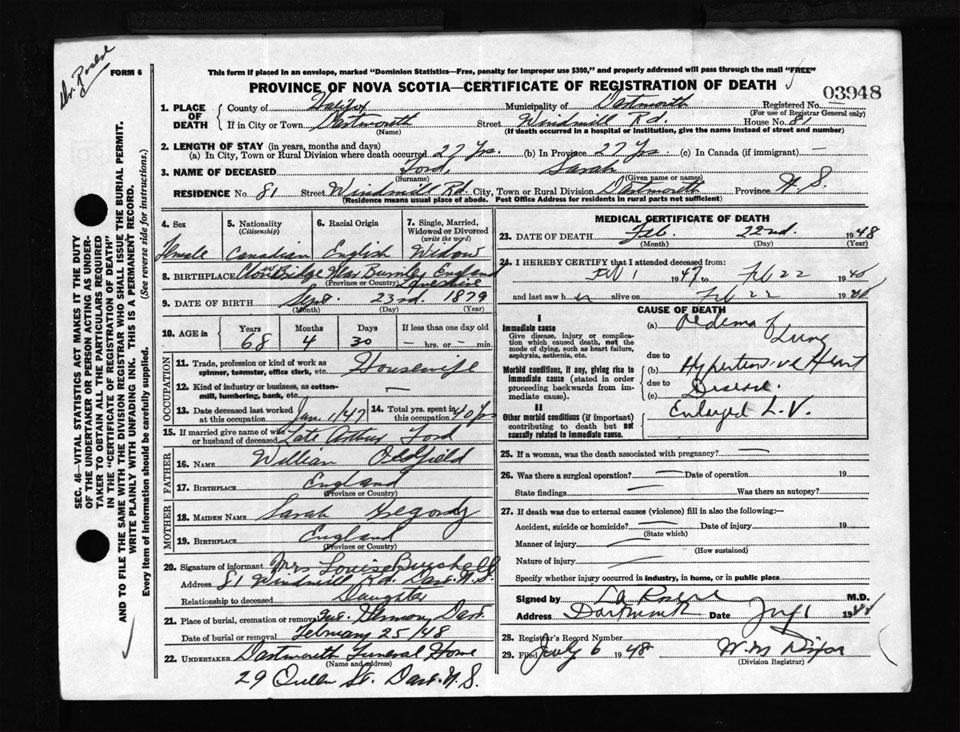 Dr. Rosere
FORM 6
This form if placed in an envelope, marked "Dominion Statistics—Free, penalty for improper use $300," and properly addressed will pass through the mail "FREE"
PROVINCE OF NOVA SCOTIA—CERTIFICATE OF REGISTRATION OF DEATH
03948
1. PLACE OF DEATH
County of Halifax Municipality of Dartmouth Registered No.
(For use of Registrar General only)
If in City or Town Dartmouth Street Windmill Rd. House No. 81
(Name) (If death occurred in a hospital or institution, give the name instead of street and number)
2. LENGTH OF STAY (in years, months and days)
(a) In City, Town or Rural Division where death occurred 27 Yrs. (b) In Province 27 Yrs. (c) In Canada (if immigrant) —
3. NAME OF DECEASED Ford, Sarah
(Surname) (Given name or names)
RESIDENCE No. 81 Street Windmill Rd. City, Town or Rural Division Dartmouth Province N.S.
(Residence means usual place of abode. Post Office Address for residents in rural parts not sufficient)
4. Sex
Female
5. Nationality
(Citizenship)
Canadian
6. Racial Origin
English
7. Single, Married, Widowed or Divorced
(write the word)
Widow
8. BIRTHPLACE Bridge Near Burnley England
(Province or Country)
9. DATE OF BIRTH Sept. 23rd. 1879
(Month) (Day) (Year)
10. AGE in Years Months Days If less than one day old
68 4 30 — hrs. or — min.
OCCUPATION
11. Trade, profession or kind of work as spinner, teamster, office clerk, etc. Housewife
12. Kind of industry or business, as cotton-mill, lumbering, bank, etc. —
13. Date deceased last worked at this occupation Jan. 1/47 14. Total yrs. spent in this occupation 40 Yrs
15. If married give name of wife or husband of deceased Late Arthur Ford
FATHER
16. NAME William Oldfield
17. BIRTHPLACE England
(Province or Country)
MOTHER
18. MAIDEN NAME Sarah Gregory
19. BIRTHPLACE England
(Province or Country)
20. Signature of informant Mrs Louise Burchell
Address 81 Windmill Rd. Dart. N.S.
Relationship to deceased Daughter
21. Place of burial, cremation or removal Mt. Hermon, Dart.
Date of burial or removal February 25/48
22. UNDERTAKER Dartmouth Funeral Home
(Name and address)
29 Queen St. Dart. N.S.
MEDICAL CERTIFICATE OF DEATH
23. DATE OF DEATH Feb. 22nd. 1948
(Month) (Day) (Year)
24. I HEREBY CERTIFY that I attended deceased from:
Feb 1 1947 to Feb 22 1948
and last saw her alive on Feb 22 1948
CAUSE OF DEATH
I
Immediate cause
Give disease, injury or complication which caused death, not the mode of dying, such as heart failure, asphyxia, asthenia, etc.
(a) Oedema of Lung
due to
Morbid conditions, if any, giving rise to immediate cause (stated in order proceeding backwards from immediate cause).
(b) Hypertensive Heart
due to Disease.
(c)
II
Other morbid conditions (if important) contributing to death but not causally related to immediate cause.
Enlarged L.V.
25. If a woman, was the death associated with pregnancy? —
26. Was there a surgical operation? — Date of operation 19
State findings — Was there an autopsy?
27. If death was due to external causes (violence) fill in also the following:—
Accident, suicide or homicide? — Date of injury 19
(State which)
Manner of injury —
(How sustained)
Nature of injury —
Specify whether injury occurred in industry, in home, or in public place
Signed by M.D.
Address Dartmouth Date July 1 1948
28. Registrar's Record Number
29. Filed July 6 1948 W. M. Dixon
(Division Registrar)
SEC. 46—VITAL STATISTICS ACT MAKES IT THE DUTY
OF THE UNDERTAKER OR PERSON ACTING AS UNDER-
TAKER TO OBTAIN ALL THE PARTICULARS REQUIRED
IN THE "CERTIFICATE OF REGISTRATION OF DEATH"
AND TO FILE THE SAME WITH THE DIVISION REGISTRAR WHO SHALL ISSUE THE BURIAL PERMIT.
WRITE PLAINLY WITH UNFADING INK. THIS IS A PERMANENT RECORD.
Every item of information should be carefully supplied. (See reverse side for instructions.)